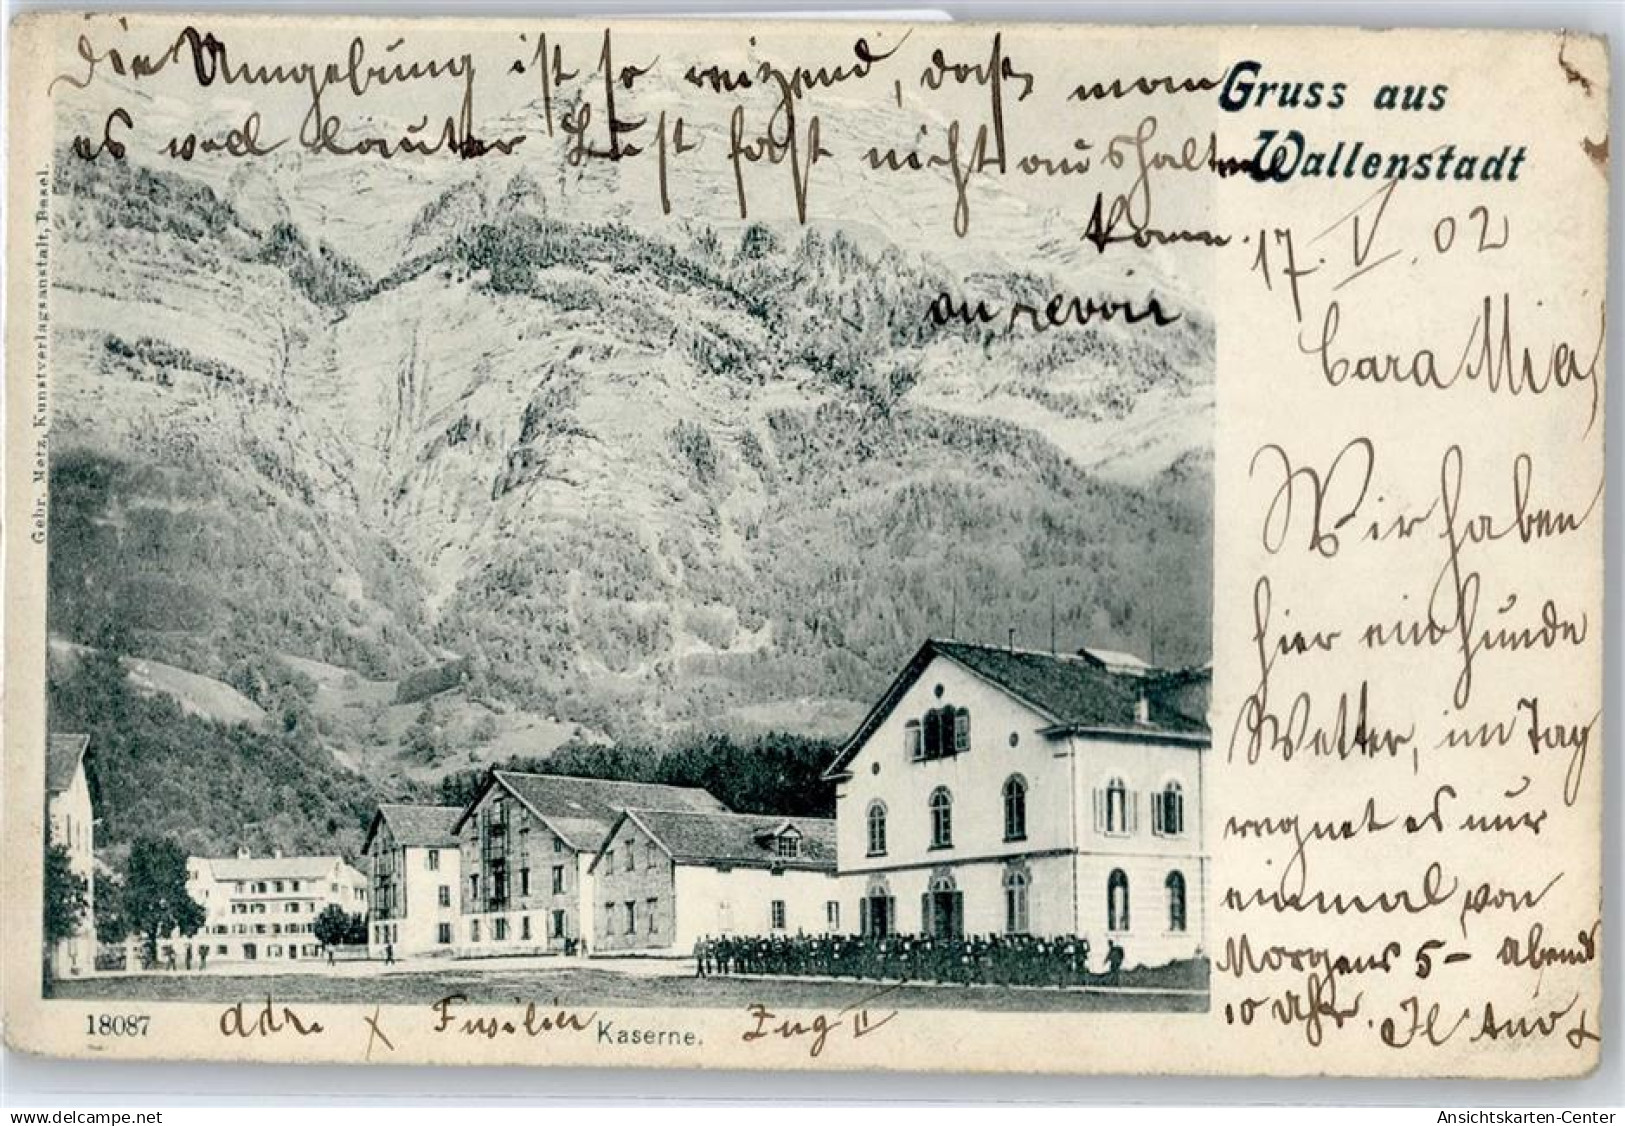 Die Umgebung ist so reizend, dass man
es voll lauter Lust fast nicht aushalten
kann.
au revoir
Gruss aus
Wallenstadt
17. V. 02
Cara Mia,
Wir haben
hier ein Hunde
Wetter, im Tag
regnet es nur
einmal, von
Morgens 5 - Abends
10 Uhr.
Gebr. Metz, Kunstverlagsanstalt, Basel.
18087
adr. x Füsilier Zug II
Kaserne.
Ansichtskarten-Center
www.delcampe.net